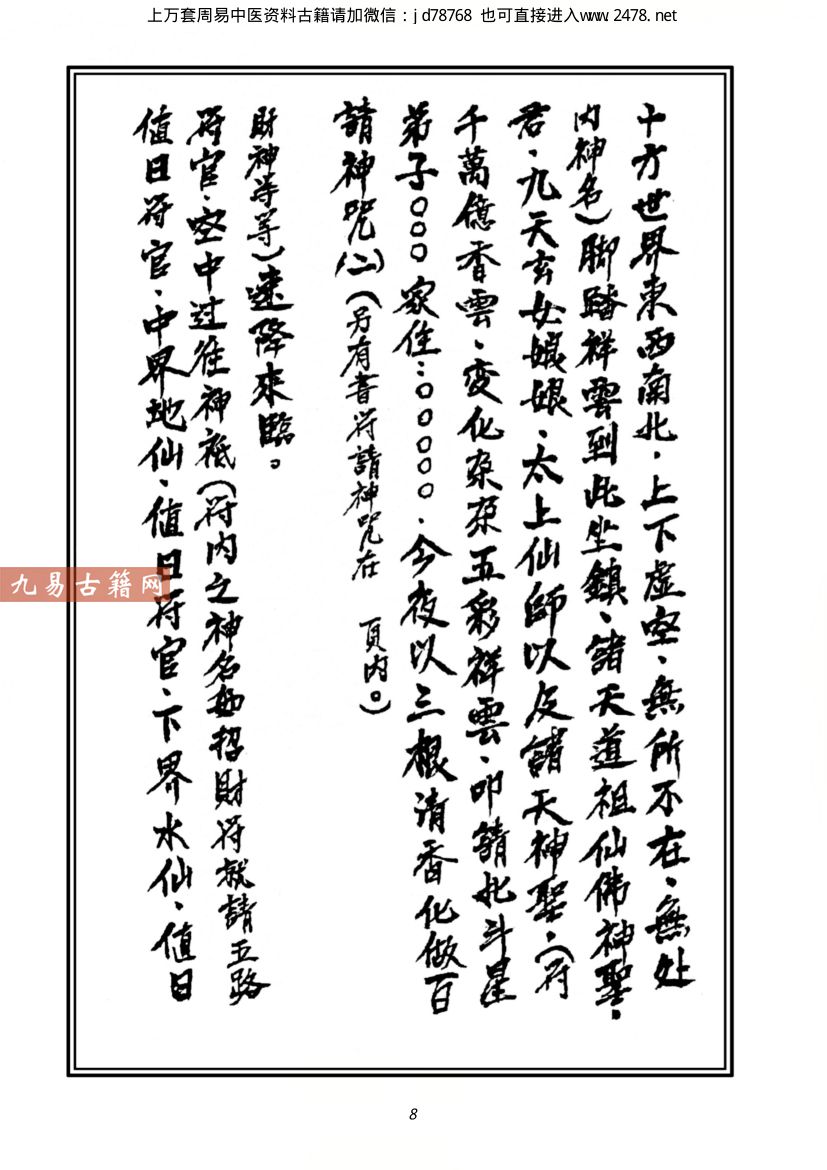 上万套周易中医资料古籍请加微信：jd78768 也可直接进入www.2478.net
值日符官、中界地仙、值日符官、下界水仙、值日
符官、空中过往神祇(符内之神名如招財符就請五路
財神等等)速降來臨。
請神咒(二)(另有書符請神咒在 頁内。)
弟子○○○家住：○○○○○、今夜以三根清香化做百
千萬億香雲、变化朶朶五彩祥雲、叩請北斗星
君、九天玄女娘娘、太上仙師以及諸天神聖、(符
内神名)脚踏祥雲到此坐鎮、諸天道祖仙佛神聖、
十方世界東西南北、上下虚空、無所不在、無处
九易古籍网
8